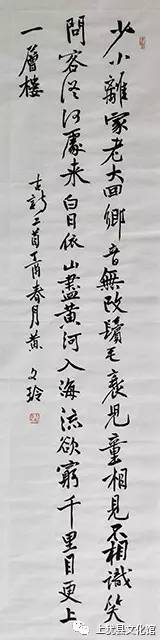 少小離家老大回鄉音無改鬢毛衰兒童相見不相識笑
問客從何處来白日依山盡黄河入海流欲窮千里目更上
一層樓
古詩二首丁酉春月黄文玲
上犹县文化馆